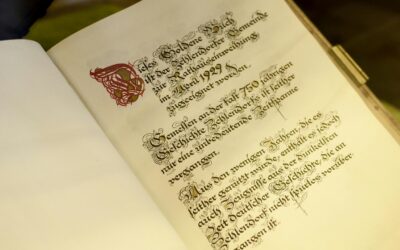 Dieses Goldene Buch
ist der Zehlendorfer Gemeinde
zur Rathauseinweihung
im April 1929
zugeeignet worden.
Gemessen an der fast 750 jährigen
Geschichte Zehlendorfs ist seither
nur eine unbedeutende Zeitspanne
vergangen.
Aus den wenigen Jahren, die es
seither genutzt wurde, enthält es jedoch
auch Zeugnisse aus der dunkelsten
Zeit deutscher Geschichte, die an
Zehlendorf nicht spurlos vorüber
gangen ist.